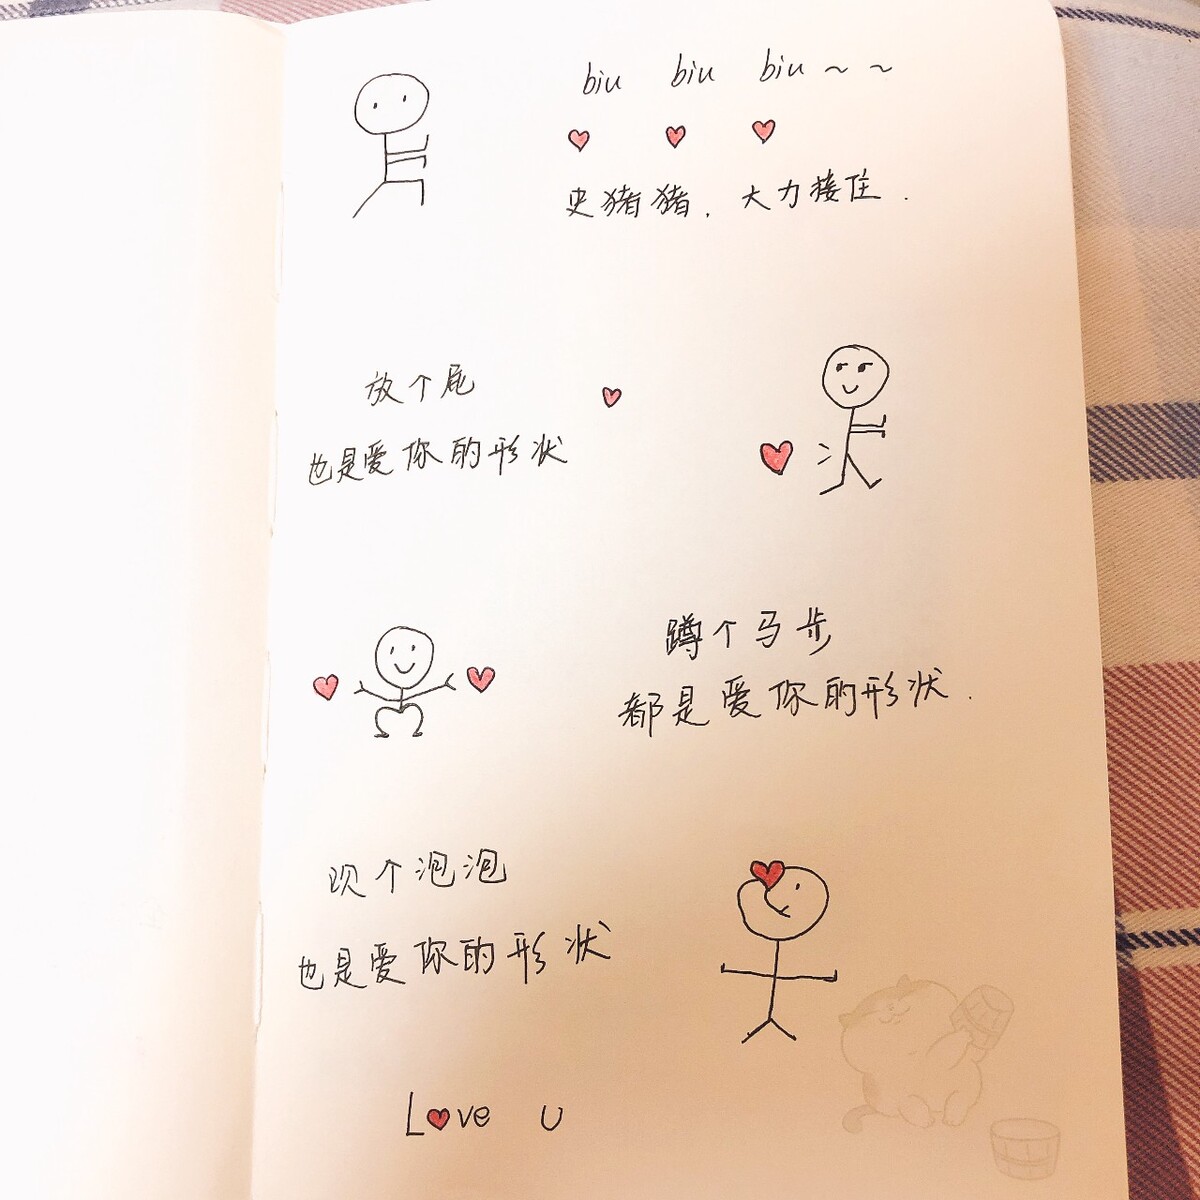 biu biu biu ~ ~
史猪猪，大力接住.
放个屁
也是爱你的形状
蹲个马步
都是爱你的形状.
吹个泡泡
也是爱你的形状
L♥ve U